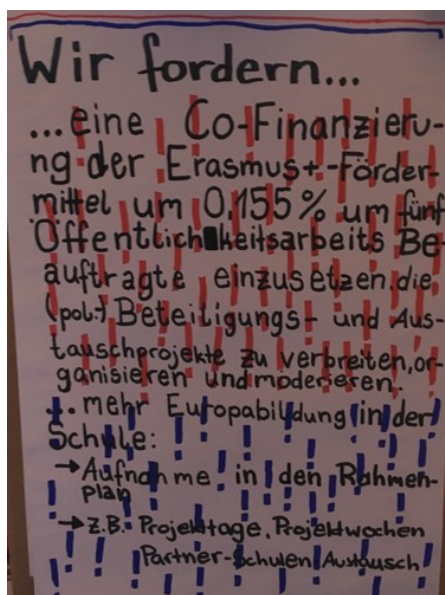 Wir fordern...
...eine Co-Finanzieru-
ng der Erasmus+-Förder-
mittel um 0,155% um fünf
Öffentlichkeitsarbeits Be-
auftragte einzusetzen, die
(pol.) Beteiligungs- und Aus-
tauschprojekte zu verbreiten, or-
ganisieren und moderieren.
... mehr Europabildung in der
Schule:
→ Aufnahme in den Rahmen-
plan
→ z.B. Projekttage, Projektwochen
Partner-Schulen Austausch